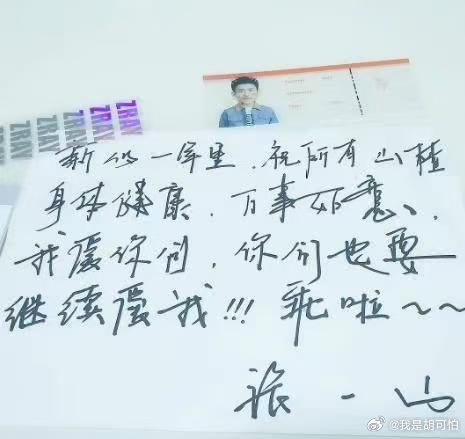 ZRAY ZRAY ZRAY ZRAY ZRAY
新的一年里,祝所有山楂
身体健康,百事如意、
我爱你们,你们也要
继续爱我!!! 乖啦~~
张一山
@我是胡可怕